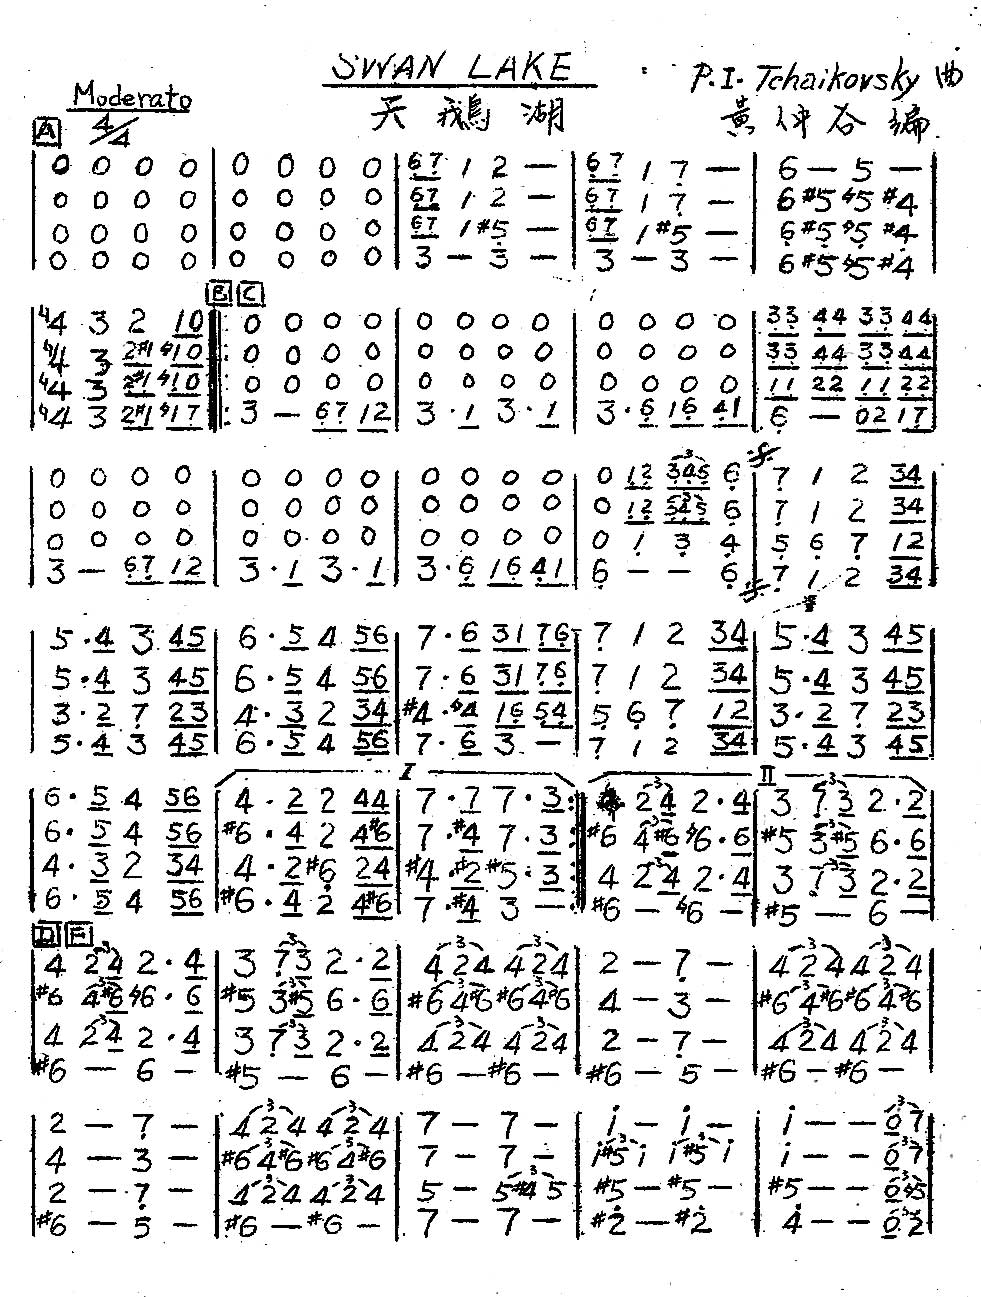 SWAN LAKE
P.I. Tchaikovsky 曲
Moderato
天 鵝 湖
黃 仲 容 編
A 4/4
0 0 0 0 | 0 0 0 0 | 67 1 2 — | 67 1 7 — | 6 — 5 — |
0 0 0 0 | 0 0 0 0 | 67 1 2 — | 67 1 7 — | 6 #5 ♮5 #4 |
0 0 0 0 | 0 0 0 0 | 67 1 #5 — | 67 1 #5 — | 6 #5 ♮5 #4 |
0 0 0 0 | 0 0 0 0 | 3 — 3 — | 3 — 3 — | 6 #5 ♮5 #4 |
B C
♮4 3 2 10 |: 0 0 0 0 | 0 0 0 0 | 0 0 0 0 | 33 44 33 44 |
♮4 3 2#1 ♮10 |: 0 0 0 0 | 0 0 0 0 | 0 0 0 0 | 33 44 33 44 |
♮4 3 2#1 ♮10 |: 0 0 0 0 | 0 0 0 0 | 0 0 0 0 | 11 22 11 22 |
♮4 3 2#1 ♮17 |: 3 — 67 12 | 3 · 1 3 · 1 | 3 · 6 16 41 | 6 — 02 17 |
0 0 0 0 | 0 0 0 0 | 0 0 0 0 | 0 12 345 6 | 7 1 2 34 |
0 0 0 0 | 0 0 0 0 | 0 0 0 0 | 0 12 345 6 | 7 1 2 34 |
0 0 0 0 | 0 0 0 0 | 0 0 0 0 | 0 1 3 4 | 5 6 7 12 |
3 — 67 12 | 3 · 1 3 · 1 | 3 · 6 16 41 | 6 — — 6 | 7 1 2 34 |
5 · 4 3 45 | 6 · 5 4 56 | 7 · 6 31 76 | 7 1 2 34 | 5 · 4 3 45 |
5 · 4 3 45 | 6 · 5 4 56 | 7 · 6 31 76 | 7 1 2 34 | 5 · 4 3 45 |
3 · 2 7 23 | 4 · 3 2 34 | #4 · ♮4 16 54 | 5 6 7 12 | 3 · 2 7 23 |
5 · 4 3 45 | 6 · 5 4 56 | 7 · 6 3 — | 7 1 2 34 | 5 · 4 3 45 |
I II
6 · 5 4 56 | 4 · 2 2 44 | 7 · 7 7 · 3 :| 24 2 · 4 | 3 73 2 · 2 |
6 · 5 4 56 | #6 · 4 2 4#6 | 7 · #4 7 · 3 :| #6 4#6 ♮6 · 6 | #5 3#5 6 · 6 |
4 · 3 2 34 | 4 · 2 #6 24 | #4 · #2 #5 · 3 :| 4 24 2 · 4 | 3 73 2 · 2 |
6 · 5 4 56 | #6 · 4 2 4#6 | 7 · #4 3 — :| #6 — ♮6 — | #5 — 6 — |
D E
4 24 2 · 4 | 3 73 2 · 2 | 424 424 | 2 — 7 — | 424 424 |
#6 4#6 ♮6 · 6 | #5 3#5 6 · 6 | #64#6 #64#6 | 4 — 3 — | #64#6 #64#6 |
4 24 2 · 4 | 3 73 2 · 2 | 424 424 | 2 — 7 — | 424 424 |
#6 — 6 — | #5 — 6 — | #6 — #6 — | #6 — 5 — | #6 — #6 — |
2 — 7 — | 424 424 | 7 — 7 — | 1 — 1 — | 1 — — 07 |
4 — 3 — | #64#6 #64#6 | 7 — 7 — | 1#51 1#51 | 1 — — 07 |
2 — 7 — | 424 424 | 5 — 5#45 | #5 — #5 — | #5 — — 0♮5 |
#6 — 5 — | #6 — #6 — | 7 — 7 — | #2 — #2 | 4 — — 02 |